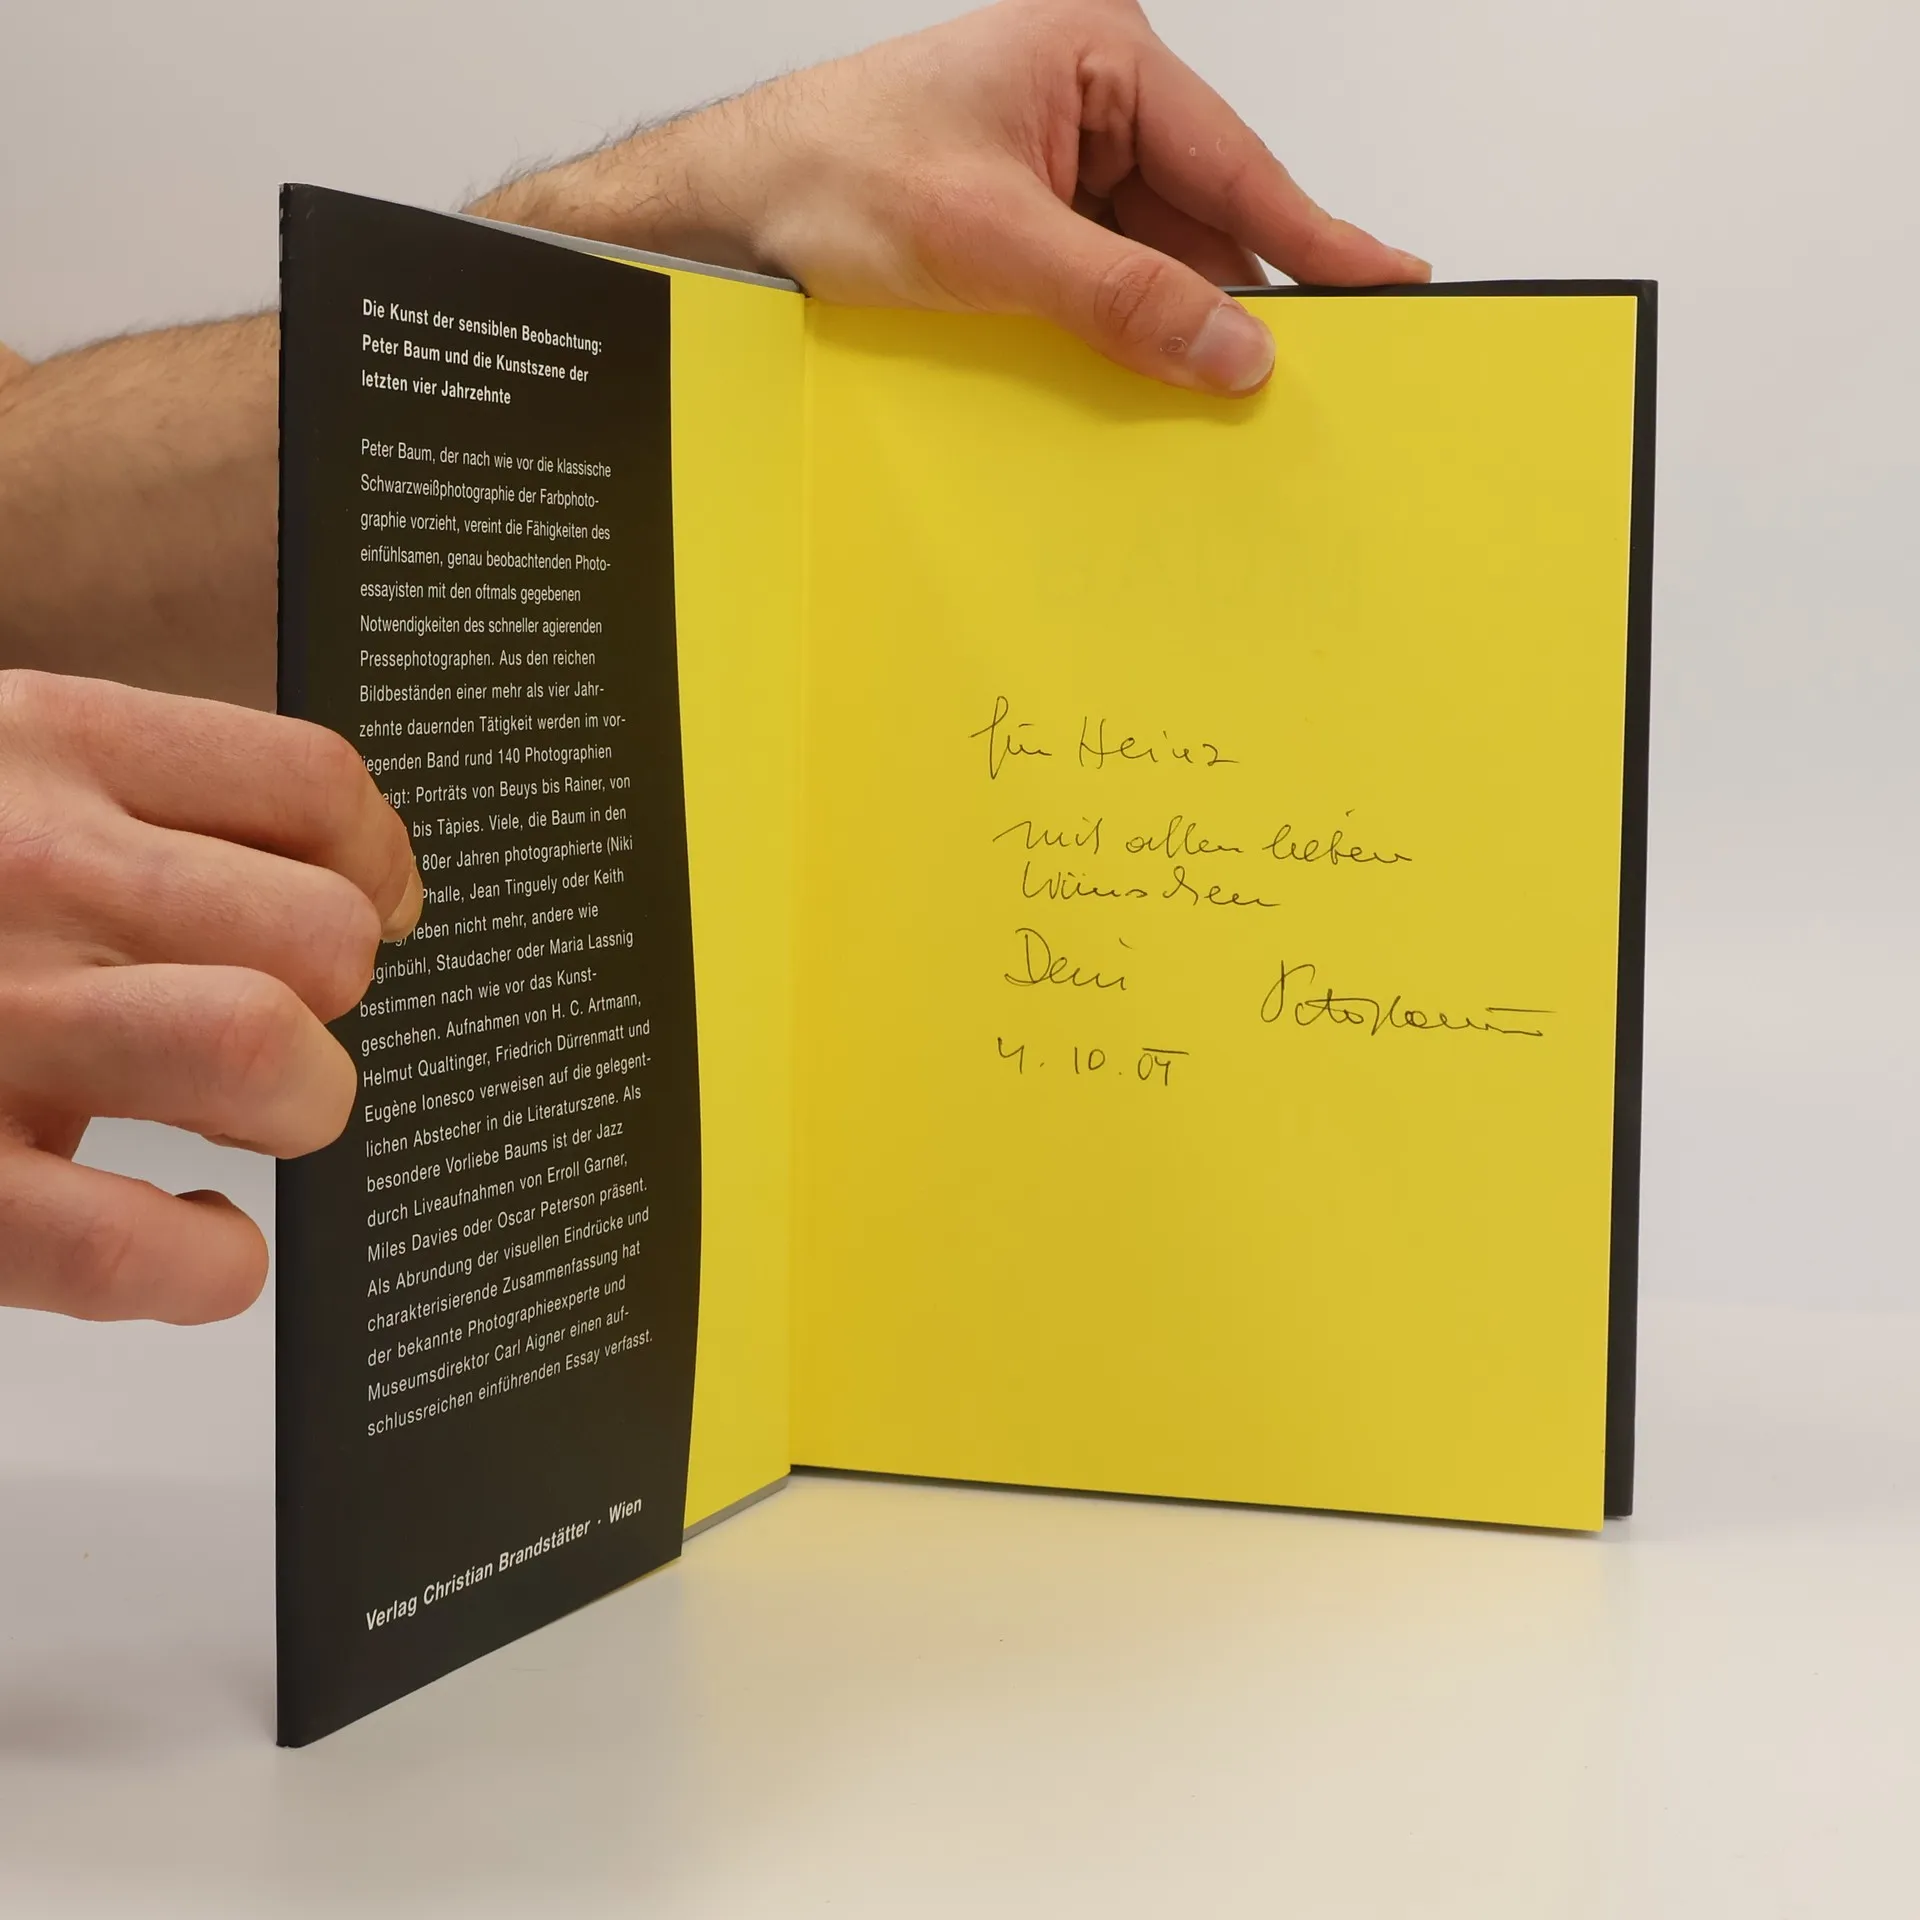 Die Kunst der sensiblen Beobachtung:
Peter Baum und die Kunstszene der
letzten vier Jahrzehnte
Peter Baum, der nach wie vor die klassische
Schwarzweißphotographie der Farbphoto-
graphie vorzieht, vereint die Fähigkeiten des
einfühlsamen, genau beobachtenden Photo-
essayisten mit den oftmals gegebenen
Notwendigkeiten des schneller agierenden
Pressephotographen. Aus den reichen
Bildbeständen einer mehr als vier Jahr-
zehnte dauernden Tätigkeit werden im vor-
liegenden Band rund 140 Photographien
Porträts von Beuys bis Rainer, von
bis Tàpies. Viele, die Baum in den
80er Jahren photographierte (Niki
Phalle, Jean Tinguely oder Keith
leben nicht mehr, andere wie
Staudacher oder Maria Lassnig
bestimmen nach wie vor das Kunst-
geschehen. Aufnahmen von H. C. Artmann,
Helmut Qualtinger, Friedrich Dürrenmatt und
Eugène Ionesco verweisen auf die gelegent-
lichen Abstecher in die Literaturszene. Als
besondere Vorliebe Baums ist der Jazz
durch Liveaufnahmen von Erroll Garner,
Miles Davies oder Oscar Peterson präsent.
Als Abrundung der visuellen Eindrücke und
charakterisierende Zusammenfassung hat
der bekannte Photographieexperte und
Museumsdirektor Carl Aigner einen auf-
schlussreichen einführenden Essay verfasst.
Verlag Christian Brandstätter · Wien
für Heinz
mit allen lieben
Wünschen
Dein Peter Baum
4. 10. 04